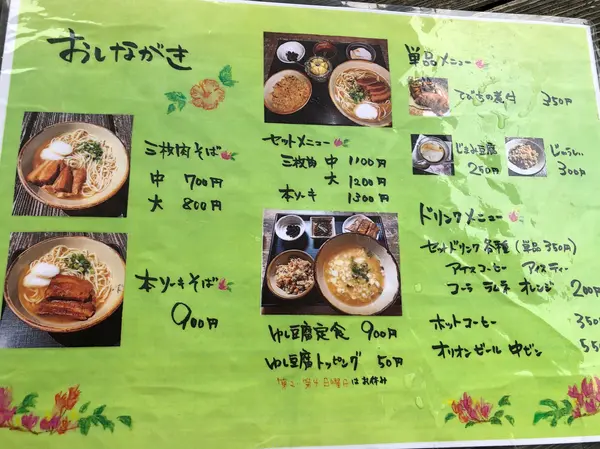 おしながき
三枚肉そば
中 700円
大 800円
本ソーキそば
900円
セットメニュー
三枚肉 中 1100円
大 1200円
本ソーキ 1300円
ゆし豆腐定食 900円
ゆし豆腐トッピング 50円
第2、第4日曜日はお休み
単品メニュー
てびちの煮付 350円
じーまみ豆腐
250円
じゅーしぃ
300円
ドリンクメニュー
セットドリンク各種(単品350円)
アイスコーヒー アイスティー
コーラ ラムネ オレンジ 200円
ホットコーヒー 350
オリオンビール 中ビン 550